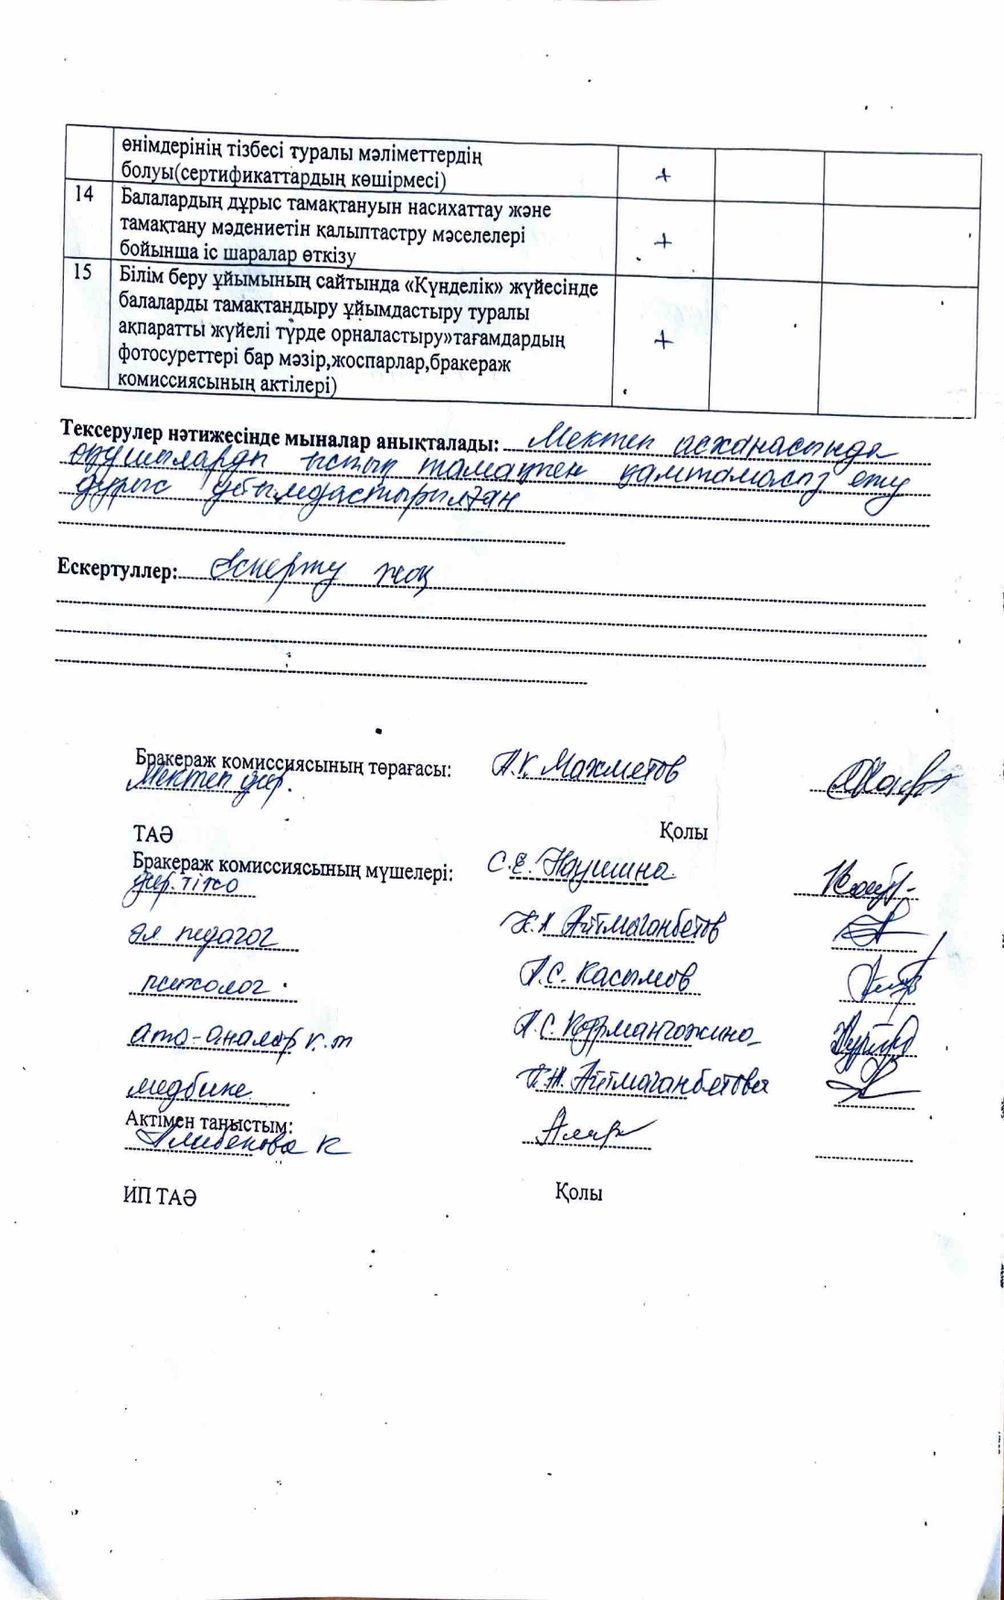 өнімдерінің тізбесі туралы мәліметтердің
болуы(сертификаттардың көшірмесі) +
14 Балалардың дұрыс тамақтануын насихаттау және
тамақтану мәдениетін қалыптастру мәселелері +
бойынша іс шаралар өткізу
15 Білім беру ұйымының сайтында «Күнделік» жүйесінде
балаларды тамақтандыру ұйымдастыру туралы
ақпаратты жүйелі түрде орналастыру»тағамдардың +
фотосуреттері бар мәзір,жоспарлар,бракераж
комиссиясының актілері)
Тексерулер нәтижесінде мыналар анықталады: Мектеп асханасында
оқушыларды ыстық тамақпен қамтамасыз ету
дұрыс ұйымдастырылған
Ескертуллер: Ескерту жоқ
Бракераж комиссиясының төрағасы: А.К. Махметов
Мектеп дир.
ТАӘ Қолы
Бракераж комиссиясының мүшелері: С.Е.
дир.
әл педагог Айтмаганбетов
психолог А.С. Касымов
ата-аналар к.т А.С. Курмангожина
медбике Айтмаганбетова
Актімен таныстым:
Алибекова К
ИП ТАӘ Қолы